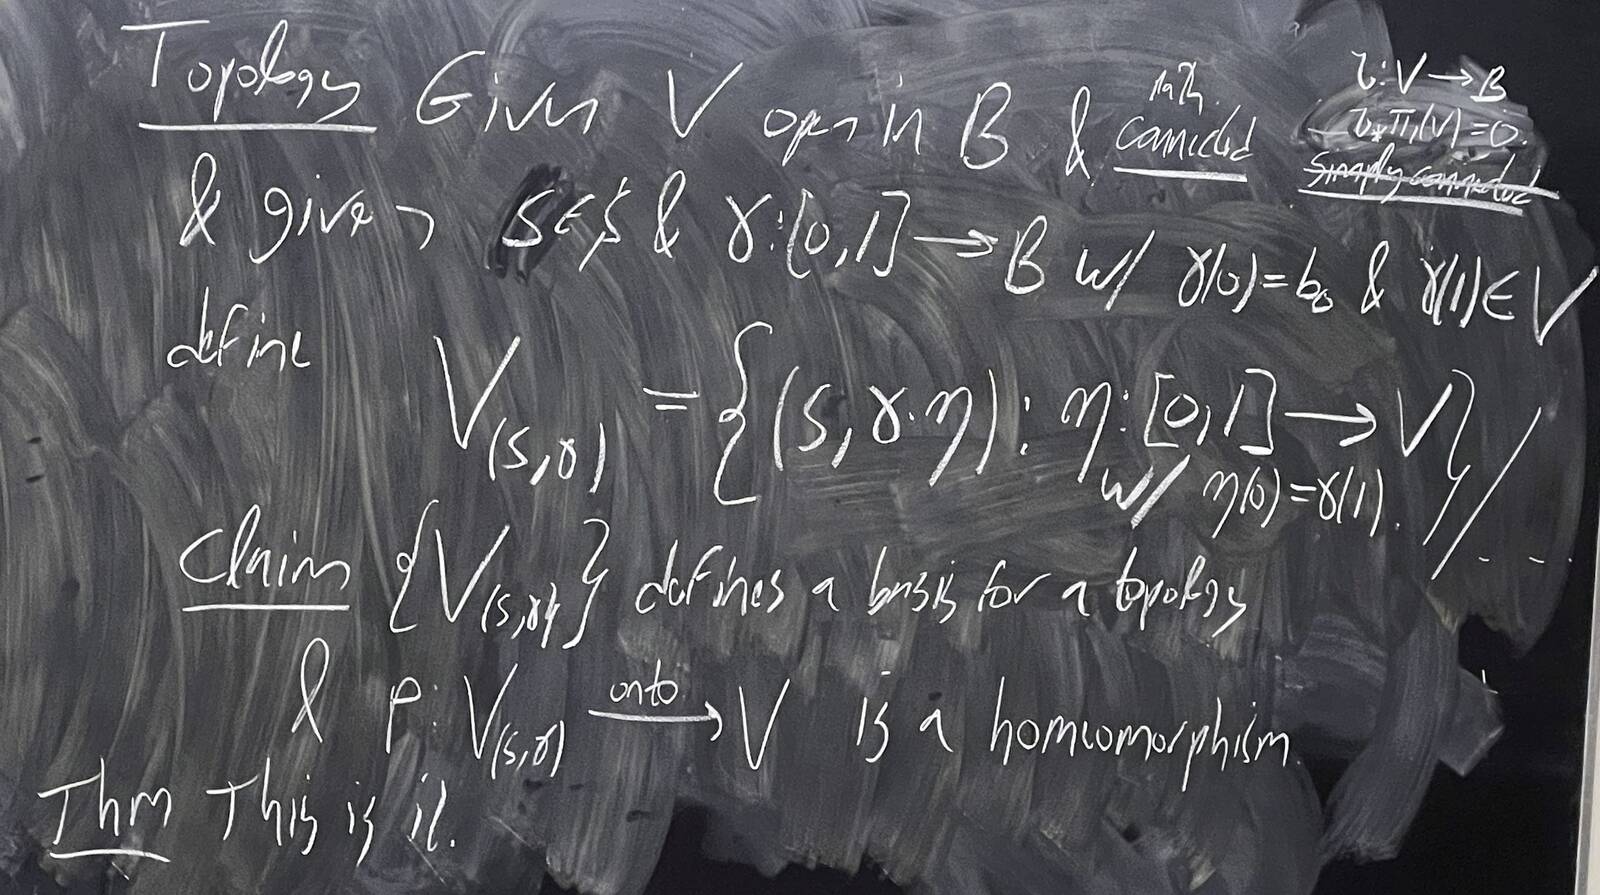 Topology Given V open in B & path connected
τ: V → B
τ* π₁(V) = 0.
simply connected
& given s ∈ S & γ: [0,1] → B w/ γ(0) = b₀ & γ(1) ∈ V
define
V(s,γ) = {(s, γ·η) : η: [0,1] → V} / ~
w/ η(0) = γ(1).
Claim {V(s,γ)} defines a basis for a topology
& p: V(s,γ) onto → V is a homeomorphism.
Thm This is it.